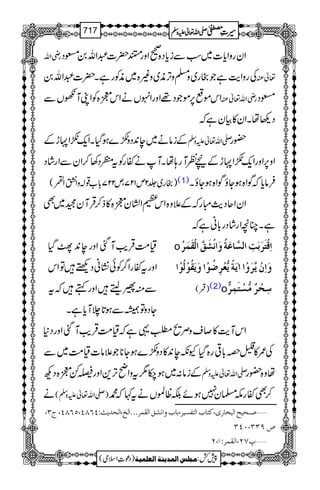 سیرت مصطفیٰ صلی اللہ تعالیٰ علیہ وسلم 717
ان روایات میں سب سے زیادہ صحیح اور مستند حضرت عبداللہ بن مسعود رضی اللہ
تعالیٰ عنہ کی روایت ہے جو بخاری و مسلم و ترمذی وغیرہ میں مذکور ہے۔ حضرت عبداللہ بن
مسعود رضی اللہ تعالیٰ عنہ اس موقع پر موجود تھے اور انہوں نے اس معجزہ کو اپنی آنکھوں سے
دیکھا تھا۔ ان کا بیان ہے کہ
حضور صلی اللہ تعالیٰ علیہ وسلم کے زمانے میں چاند دو ٹکڑے ہو گیا۔ ایک ٹکڑا پہاڑ کے
اوپر اور ایک ٹکڑا پہاڑ کے نیچے نظر آ رہا تھا۔ آپ نے کفار کو یہ منظر دکھا کر ان سے ارشاد
فرمایا کہ گواہ ہو جاؤ گواہ ہو جاؤ۔ (1) (بخاری جلد ۲ ص ۷۲۱، ص ۷۲۲ باب قولہ وانشق القمر)
ان احادیث مبارکہ کے علاوہ اس عظیم الشان معجزہ کا ذکر قرآن مجید میں بھی
ہے۔ چنانچہ ارشاد ربانی ہے کہ
اِقْتَرَبَتِ السَّاعَةُ وَانْشَقَّ الْقَمَرُ ○ وَ اِنْ يَّرَوْا اٰيَةً يُّعْرِضُوْا وَيَقُوْلُوْا
سِحْرٌ مُّسْتَمِرٌّ ○ (2) (قمر)
قیامت قریب آ گئی اور چاند پھٹ گیا
اور یہ کفار اگر کوئی نشانی دیکھتے ہیں تو اس
سے منہ پھیر لیتے ہیں اور کہتے ہیں کہ یہ
جادو تو ہمیشہ سے ہوتا چلا آیا ہے۔
اس آیت کا صاف و صریح مطلب یہی ہے کہ قیامت قریب آ گئی اور دنیا
کی عمر کا قلیل حصہ باقی رہ گیا کیونکہ چاند کا دو ٹکڑے ہو جانا جو علامات قیامت میں سے
تھا وہ حضور صلی اللہ تعالیٰ علیہ وسلم کے زمانہ میں ہو چکا مگر یہ واضح ترین اور فیصلہ کن معجزہ دیکھ
کر بھی کفار مکہ مسلمان نہیں ہوئے بلکہ ظالموں نے یہ کہا کہ محمد (صلی اللہ تعالیٰ علیہ وسلم) نے
صحیح البخاری، کتاب التفسیر، باب وانشق القمر...الخ، الحدیث: ٤٨٦٤، ٤٨٦٥، ج٣،
ص ٣٣٩، ٣٤٠
پ٢٧، القمر: ٢٠١
پیش کش: مجلس المدینة العلمیة (دعوت اسلامی)